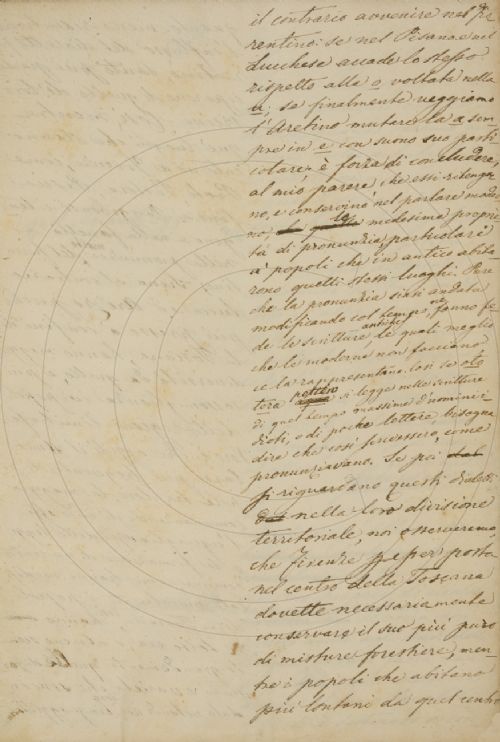 il contrario avvenire nel fio
rentino: se nel Pisano e nel
Lucchese accade lo stesso
rispetto alla o voltata nella
u; se finalmente veggiamo
l'Aretino mutare la a sem
pre in e con suono suo parti
colare, è forza di concludere,
al mio parere, che essi ritenga
no, e conservino nel parlare moder
no le medesime proprie
tà di pronunzia particolari
a' popoli che in antico abita
rono quelli stessi luoghi. Pare
che la pronunzia siasi andata
modificando col tempo, ne fanno fe
de le scritture antiche le quali meglio
che le moderne non facciano
ce la rappresentano. Così se ote
tera potera si legge nelle scritture
di quel tempo massime d'uomini i
dioti, o di poche lettere, bisogna
dire che così scrivessero, come
pronunziavano. Se poi
si riguardano questi dialetti
nella loro divisione
territoriale, noi osserveremo,
che Firenze per posta
nel centro della Toscana
dovette necessariamente
conservare il suo più puro
di misture forestiere, men
tre i popoli che abitano
più lontani da quel centro